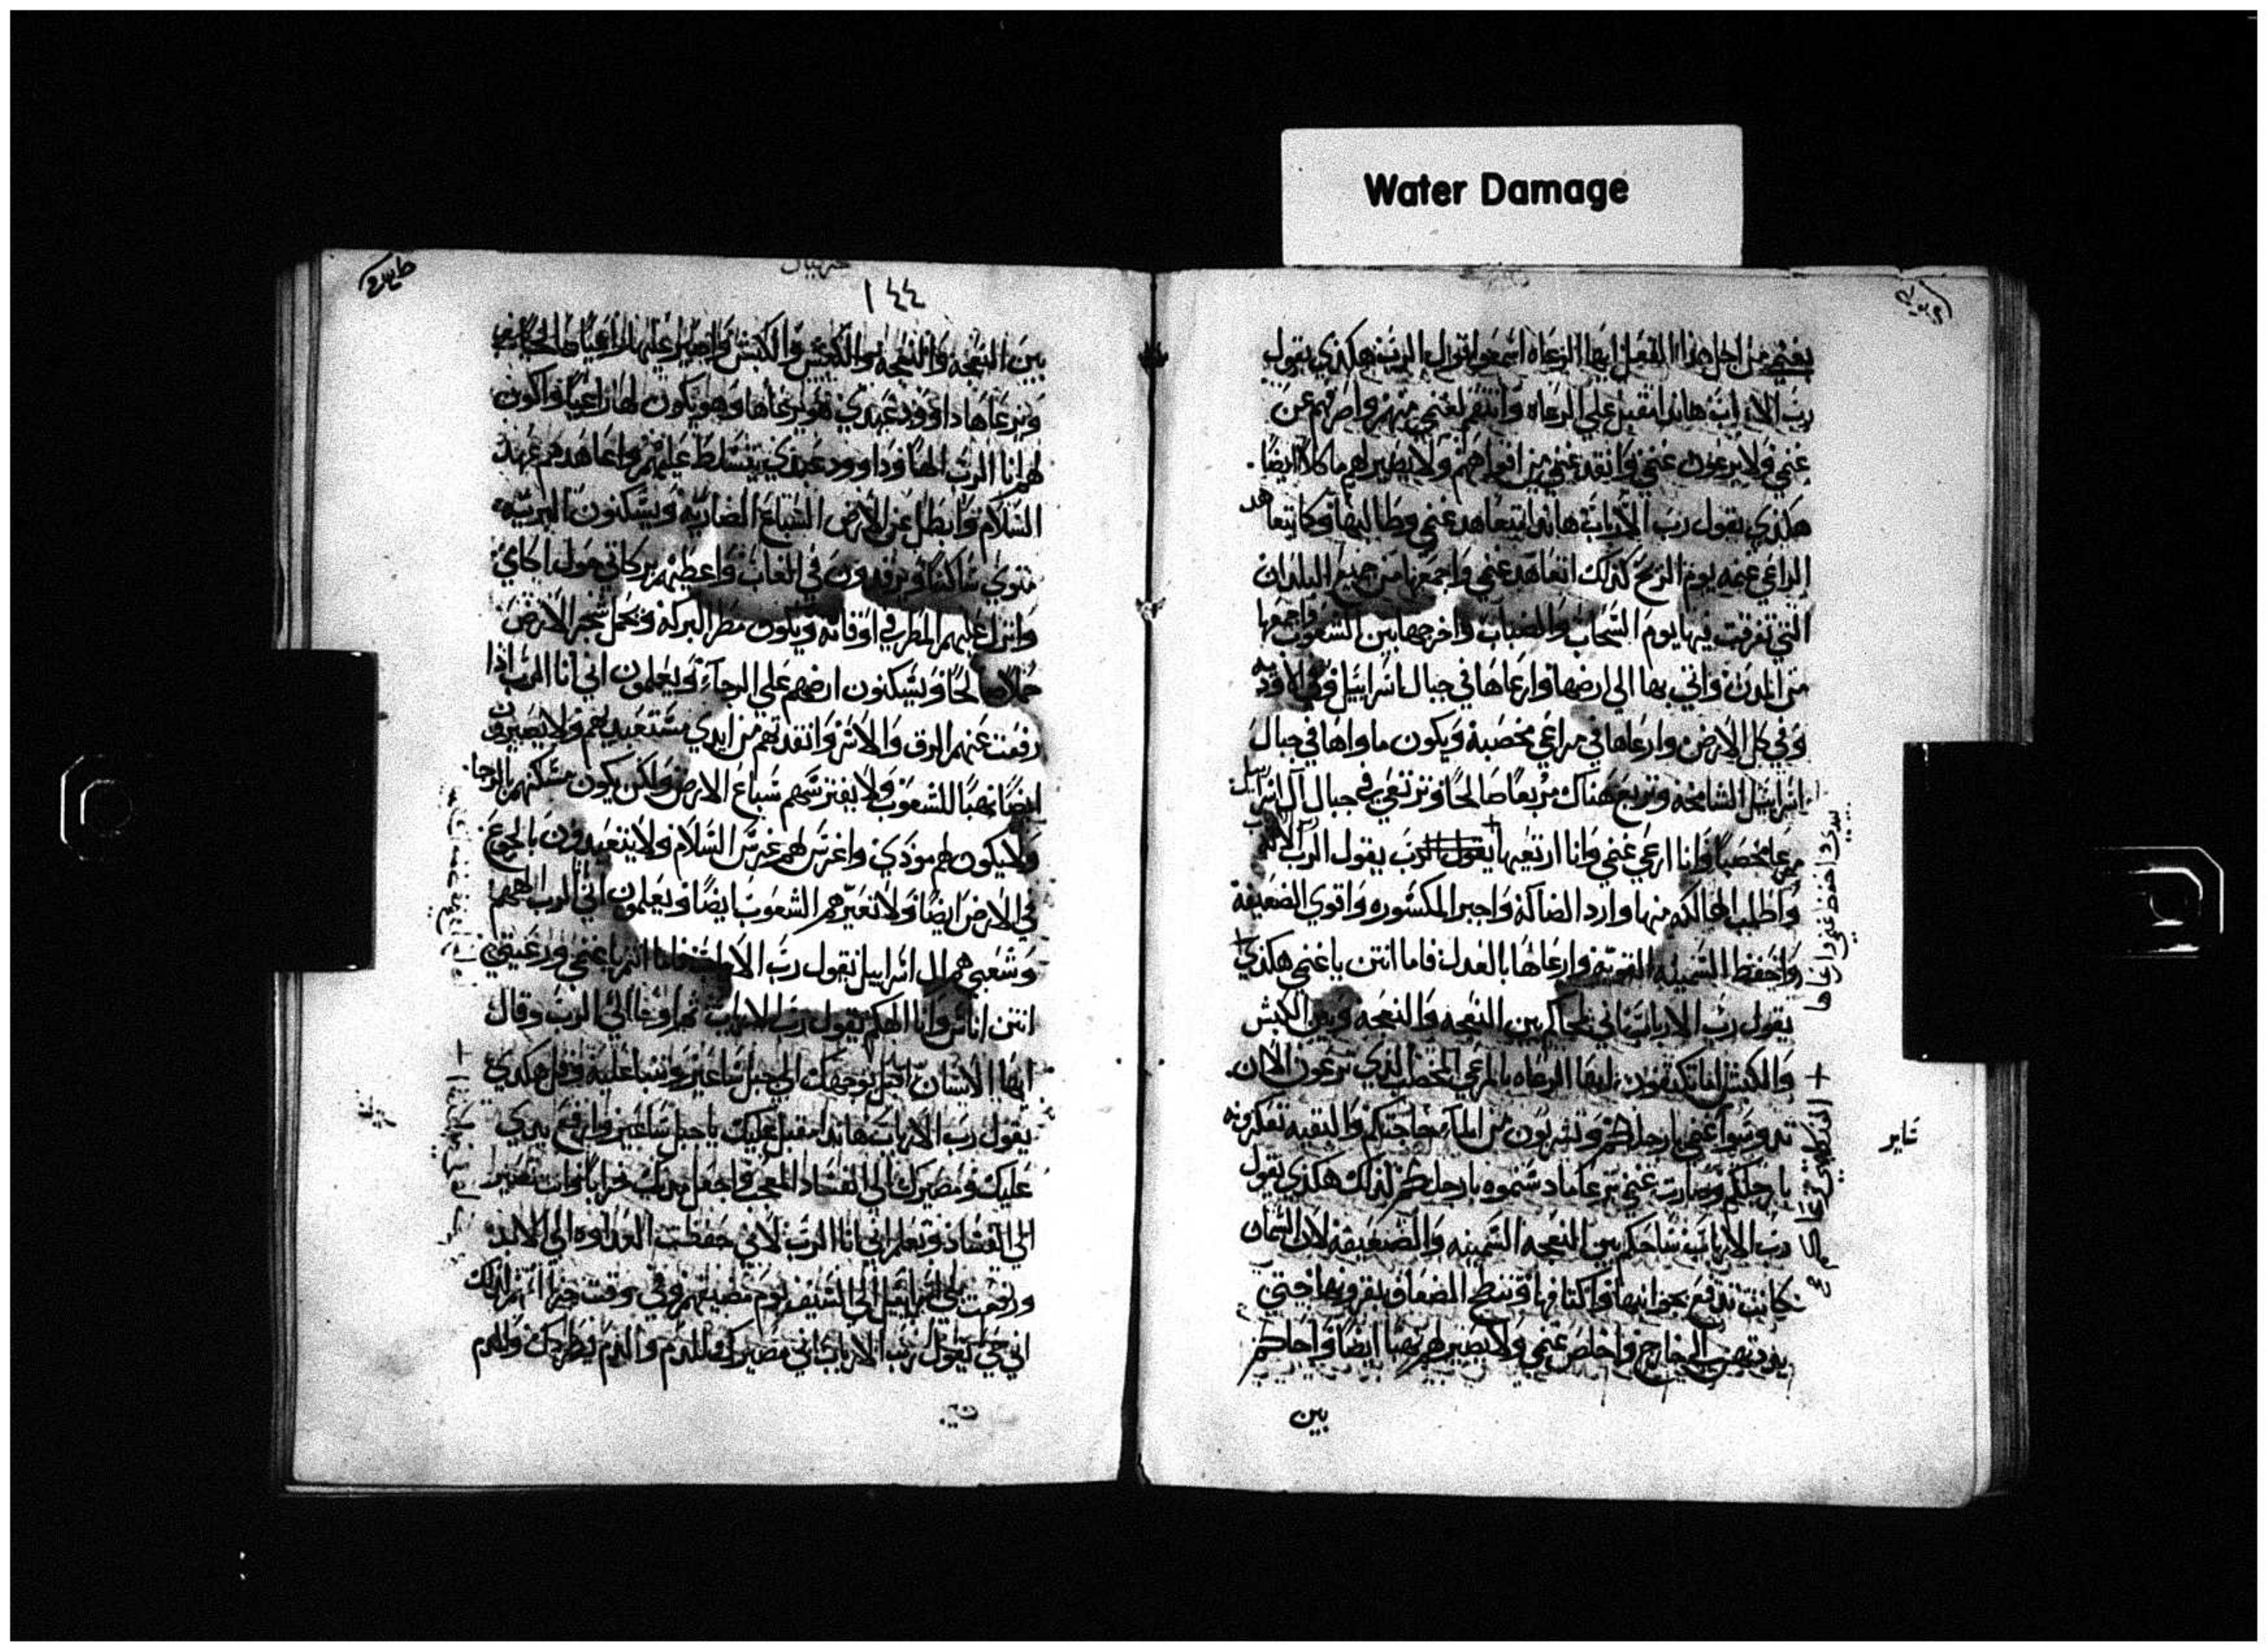 Water Damage
يغنمي من اجل هذا الفعل ايها الرعاه اسمعوا قول الرب هكذي يقول
رب الارباب هاندا مقبل علي الرعاه وانتقم لغنمي منهم واصرفهم عن
غنمي ولا يرعون غنمي وانقد غنمي من افواههم ولا يصير لهم ماكلا ايضا
هكذي يقول رب الارباب هاندا اتعاهد غنمي وطالبها وكما يتعاهد
الراعي غنمه يوم الريح كذلك اتعاهد غنمي واجمعها من جميع البلدان
التي تفرقت فيها يوم السحاب والضباب واخرجها بين الشعوب واجمعها
من المدن واتي بها الي ارضها وارعاها في جبال اسراييل وفي الاوديه
وفي كل الارض وارعاها في مراعي مخصبه ويكون ماواها في جبال
اسراييل الشامخه وتربع هناك مربعا صالحا وترتعي في جبال ال اسراييل
مرعا مخصبا وانا ارعي غنمي وانا اربعها يقول الرب يقول الرب الاله
واطلب الهالكه منها وارد الضاله واجبر المكسوره واقوي الضعيفة
واحفظ السمينه القويه وارعاها بالعدل فاما انتن ياغنمي هكذي
يقول رب الارباب اني احاكم بين النعجه والنعجه وبين الكبش
والكبش اما تكتفون ايها الرعاه بالمرعي المخصب الذي ترعون الان
تدوسوا غنمي بارجلكم وتشربون من الما حاجتكم والبقيه تعكرونه
بارجلكم وصارت غنمي ترعا ما دستموه بارجلكم لذلك هكذي يقول
رب الارباب ساحكم بين النعجه السمينه والضعيفة لان السمان
كانت تدفع بجوانبها واكتافها وتنطح الضعاف بقرونها حتي
بددتهن الي خارج واخلص غنمي ولا يصير لهم نهبا ايضا واحاكم
بين
١٤٤
بين النعجه والنعجه والكبش والكبش واصير عليها راعيا صالحا
ويرعاها داوود عبدي هو يرعاها وهو يكون لها راعيا واكون
لهم انا الرب الها وداوود عبدي يتسلط عليهم واعاهدهم عهد
السلام وابطل عن الارض السباع الضاريه ويسكنون البريه
ساكنا ويرقدون في الغاب واعطيهم بركاتي حول
وانزل عليهم المطر في اوقاته ويكون مطر البركه وتحمل شجر الارض
حملا صالحا ويسكنون ارضهم علي الرجاء ويعلمون اني انا الرب اذا
رفعت عنهم الرق والاسر وانقدتهم من ايدي مستعبديهم ولا يصيرون
ايضا نهبا للشعوب ولا يفترسهم سباع الارض ولكن يكون مسكنهم بالرجا
ولا يكون لهم موذي واغرس لهم غرس السلام ولا يتعبدون بالجوع
في الارض ايضا ولا تعيرهم الشعوب ايضا ويعلمون اني الرب الههم
وشعبي هم ال اسراييل يقول رب الارباب فاما انتم ياغنمي ورعيتي
انتن اناس وانا الهكم يقول رب الارباب ثم اوحا الي الرب وقال
ايها الانسان اقبل بوجهك الي جبل ساعير وتنبا عليه وقل هكذي
يقول رب الارباب هاندا مقبل عليك ياجبل ساعير وارفع يدي
عليك ومصيرك الي الفساد والعجب واجعل مدنك خرابا وانت تصير
الي الفساد وتعلم اني انا الرب لانك حفظت العداوه الي الابد
ودفعت بني اسراييل الي السيف يوم مصيبتهم وفي وقت جزا اثمهم لذلك
اني حي يقول رب الارباب اني مصيرك للدم والدم يطردك وللدم